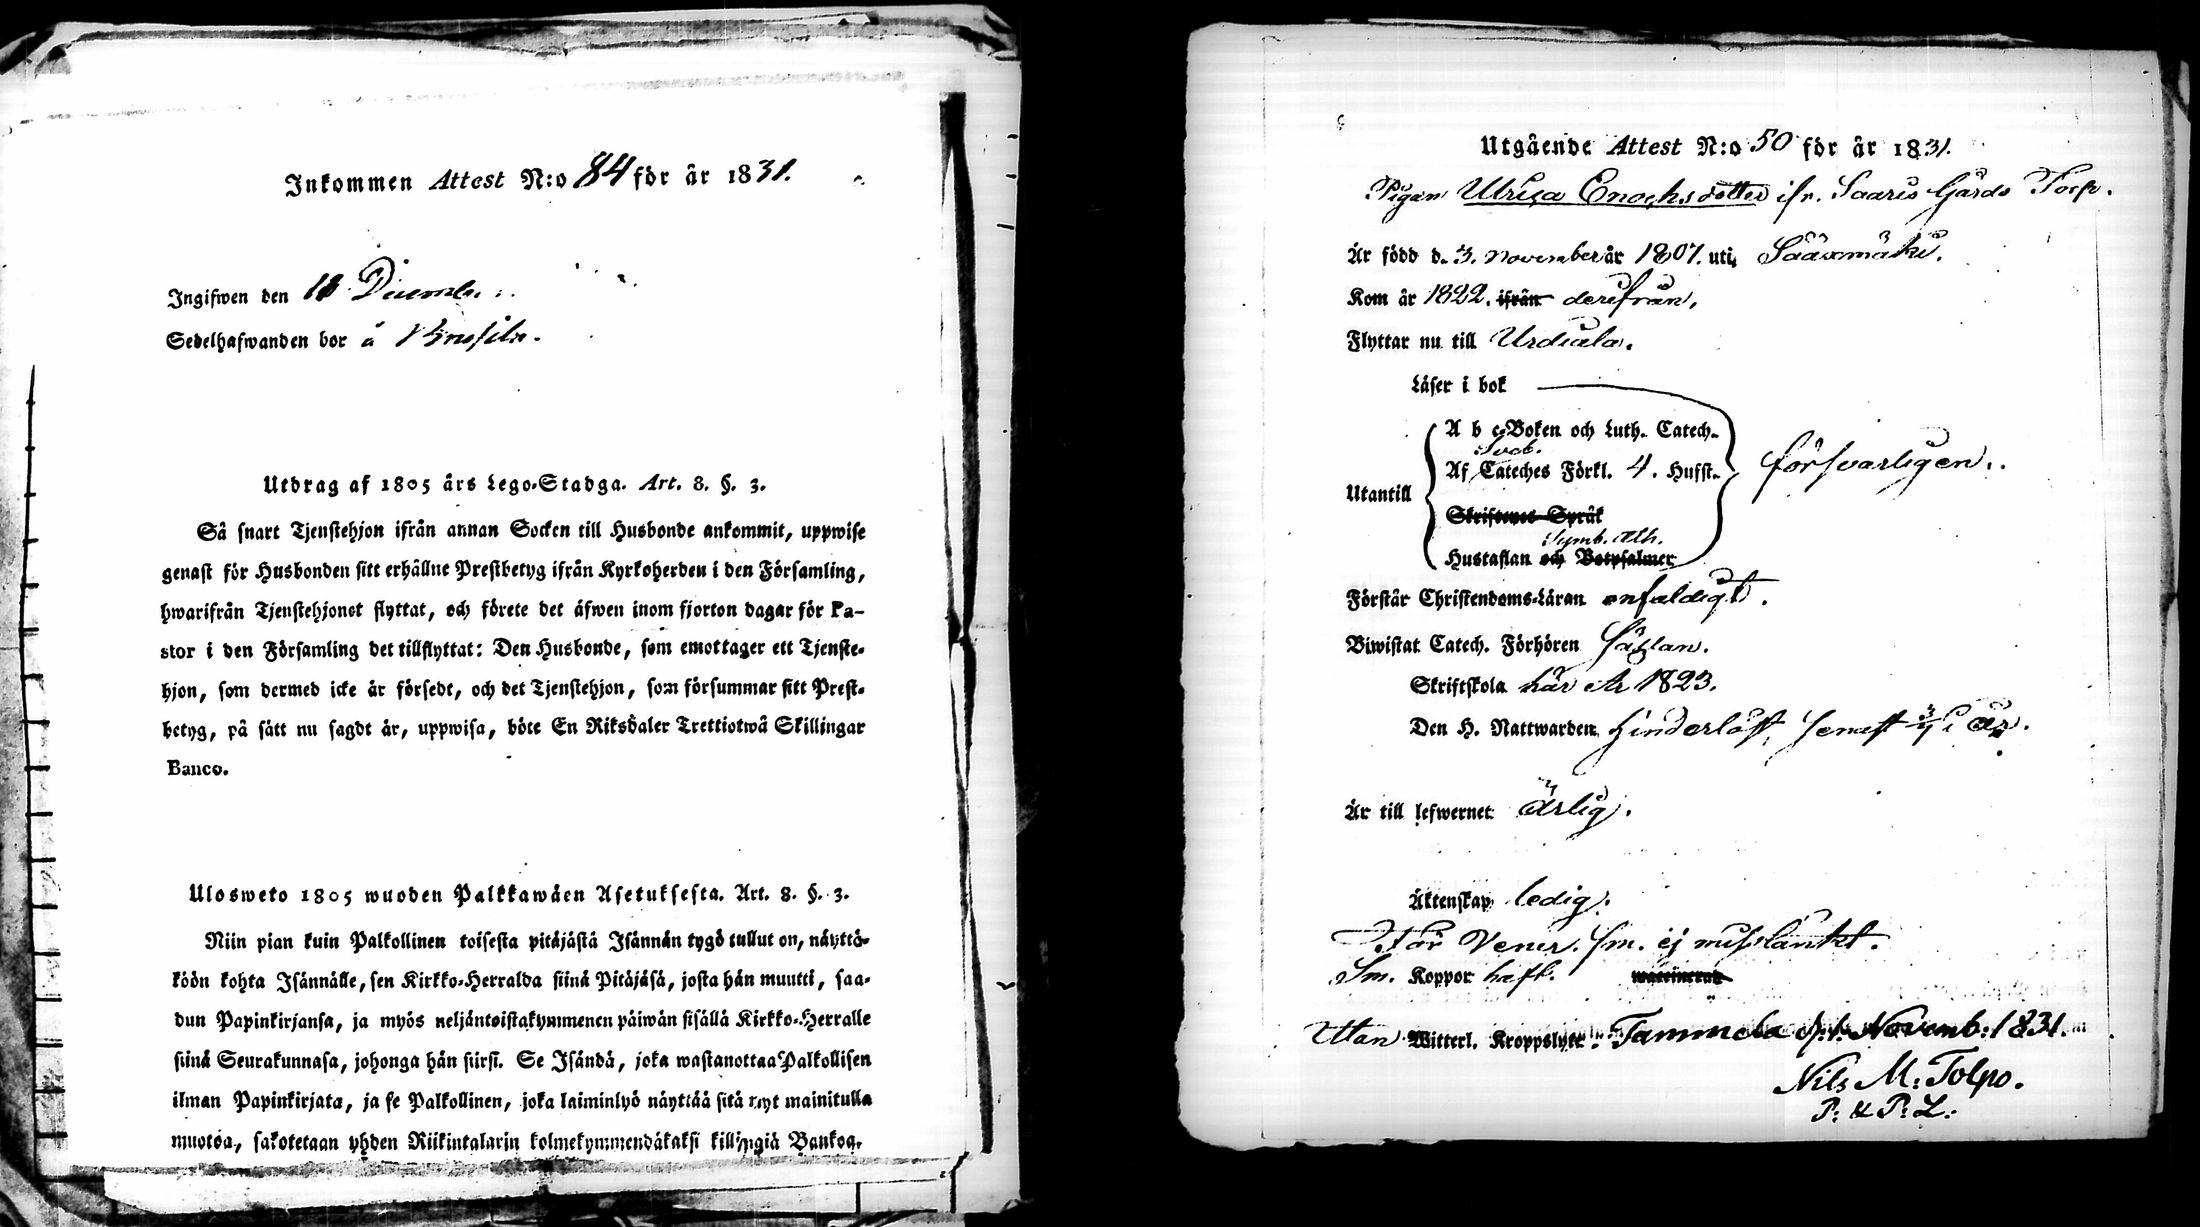 Inkommen Attest N:o 84 för år 1831.
Ingifwen den 18 Decemb.
Sedelhafwanden bor å
Utdrag af 1805 års Lego-Stadga. Art. 8. §. 3.
Så snart Tjenstehjon ifrån annan Socken till Husbonde ankommit, uppwise
genast för Husbonden sitt erhållne Prestbetyg ifrån Kyrkoherden i den Församling,
hwarifrån Tjenstehjonet flyttat, och förete det äfwen inom fjorton dagar för Pa-
stor i den Församling det tillflyttat: Den Husbonde, som emottager ett Tjenste-
hjon, som dermed icke är försedt, och det Tjenstehjon, som försummar sitt Prest-
betyg, på sätt nu sagdt är, uppwisa, böte En Riksdaler Trettiotwå Skillingar
Banco.
Ulosweto 1805 wuoden Palkkawäen Asetuksesta. Art. 8. §. 3.
Niin pian kuin Palkollinen toisesta pitäjästä Isännän tygö tullut on, näyttä-
köön kohta Isännälle, sen Kirkko-Herralda siinä Pitäjäsä, josta hän muutti, saa-
dun Papinkirjansa, ja myös neljäntoistakymmenen päiwän sisällä Kirkko-Herralle
siinä Seurakunnasa, johonga hän siirsi. Se Isändä, joka wastanottaa Palkollisen
ilman Papinkirjata, ja se Palkollinen, joka laiminlyö näyttää sitä nyt mainitulla
muotoa, sakotetaan yhden Riikintalarin kolmekymmendäkaksi killingiä Bankoa.
Utgående Attest N:o 50 för år 1831.
Pigan Ulrica Enochsdotter ifr. Saaris Gårds Torp.
Är född d. 3. November år 1807. uti Sääxmäki.
Kom år 1822. ifrån derifrån,
Flyttar nu till Urdiala.
Läser i bok
A b c-Boken och Luth. Catech.
Sveb.
Af Cateches Förkl. 4. Hufst.
försvarligen.
Utantill
Skriftenes Språk
Symb. Ath.
Hustaflan och Botpsalmer
Förstår Christendoms-Läran enfaldigt.
Biwistat Catech. Förhören sällan.
Skriftskola här År 1823.
Den H. Nattwarden hinderlöst, senast i år.
Är till lefwernet ärlig.
Äktenskap ledig.
För Vener. sm. ej misstänkt.
Sm. Koppor haft. waccinerad
Utan Witterl. Kroppslyte. Tammela d. 1. Novemb: 1831.
Nils M: Tolpo.
P: & P: L: